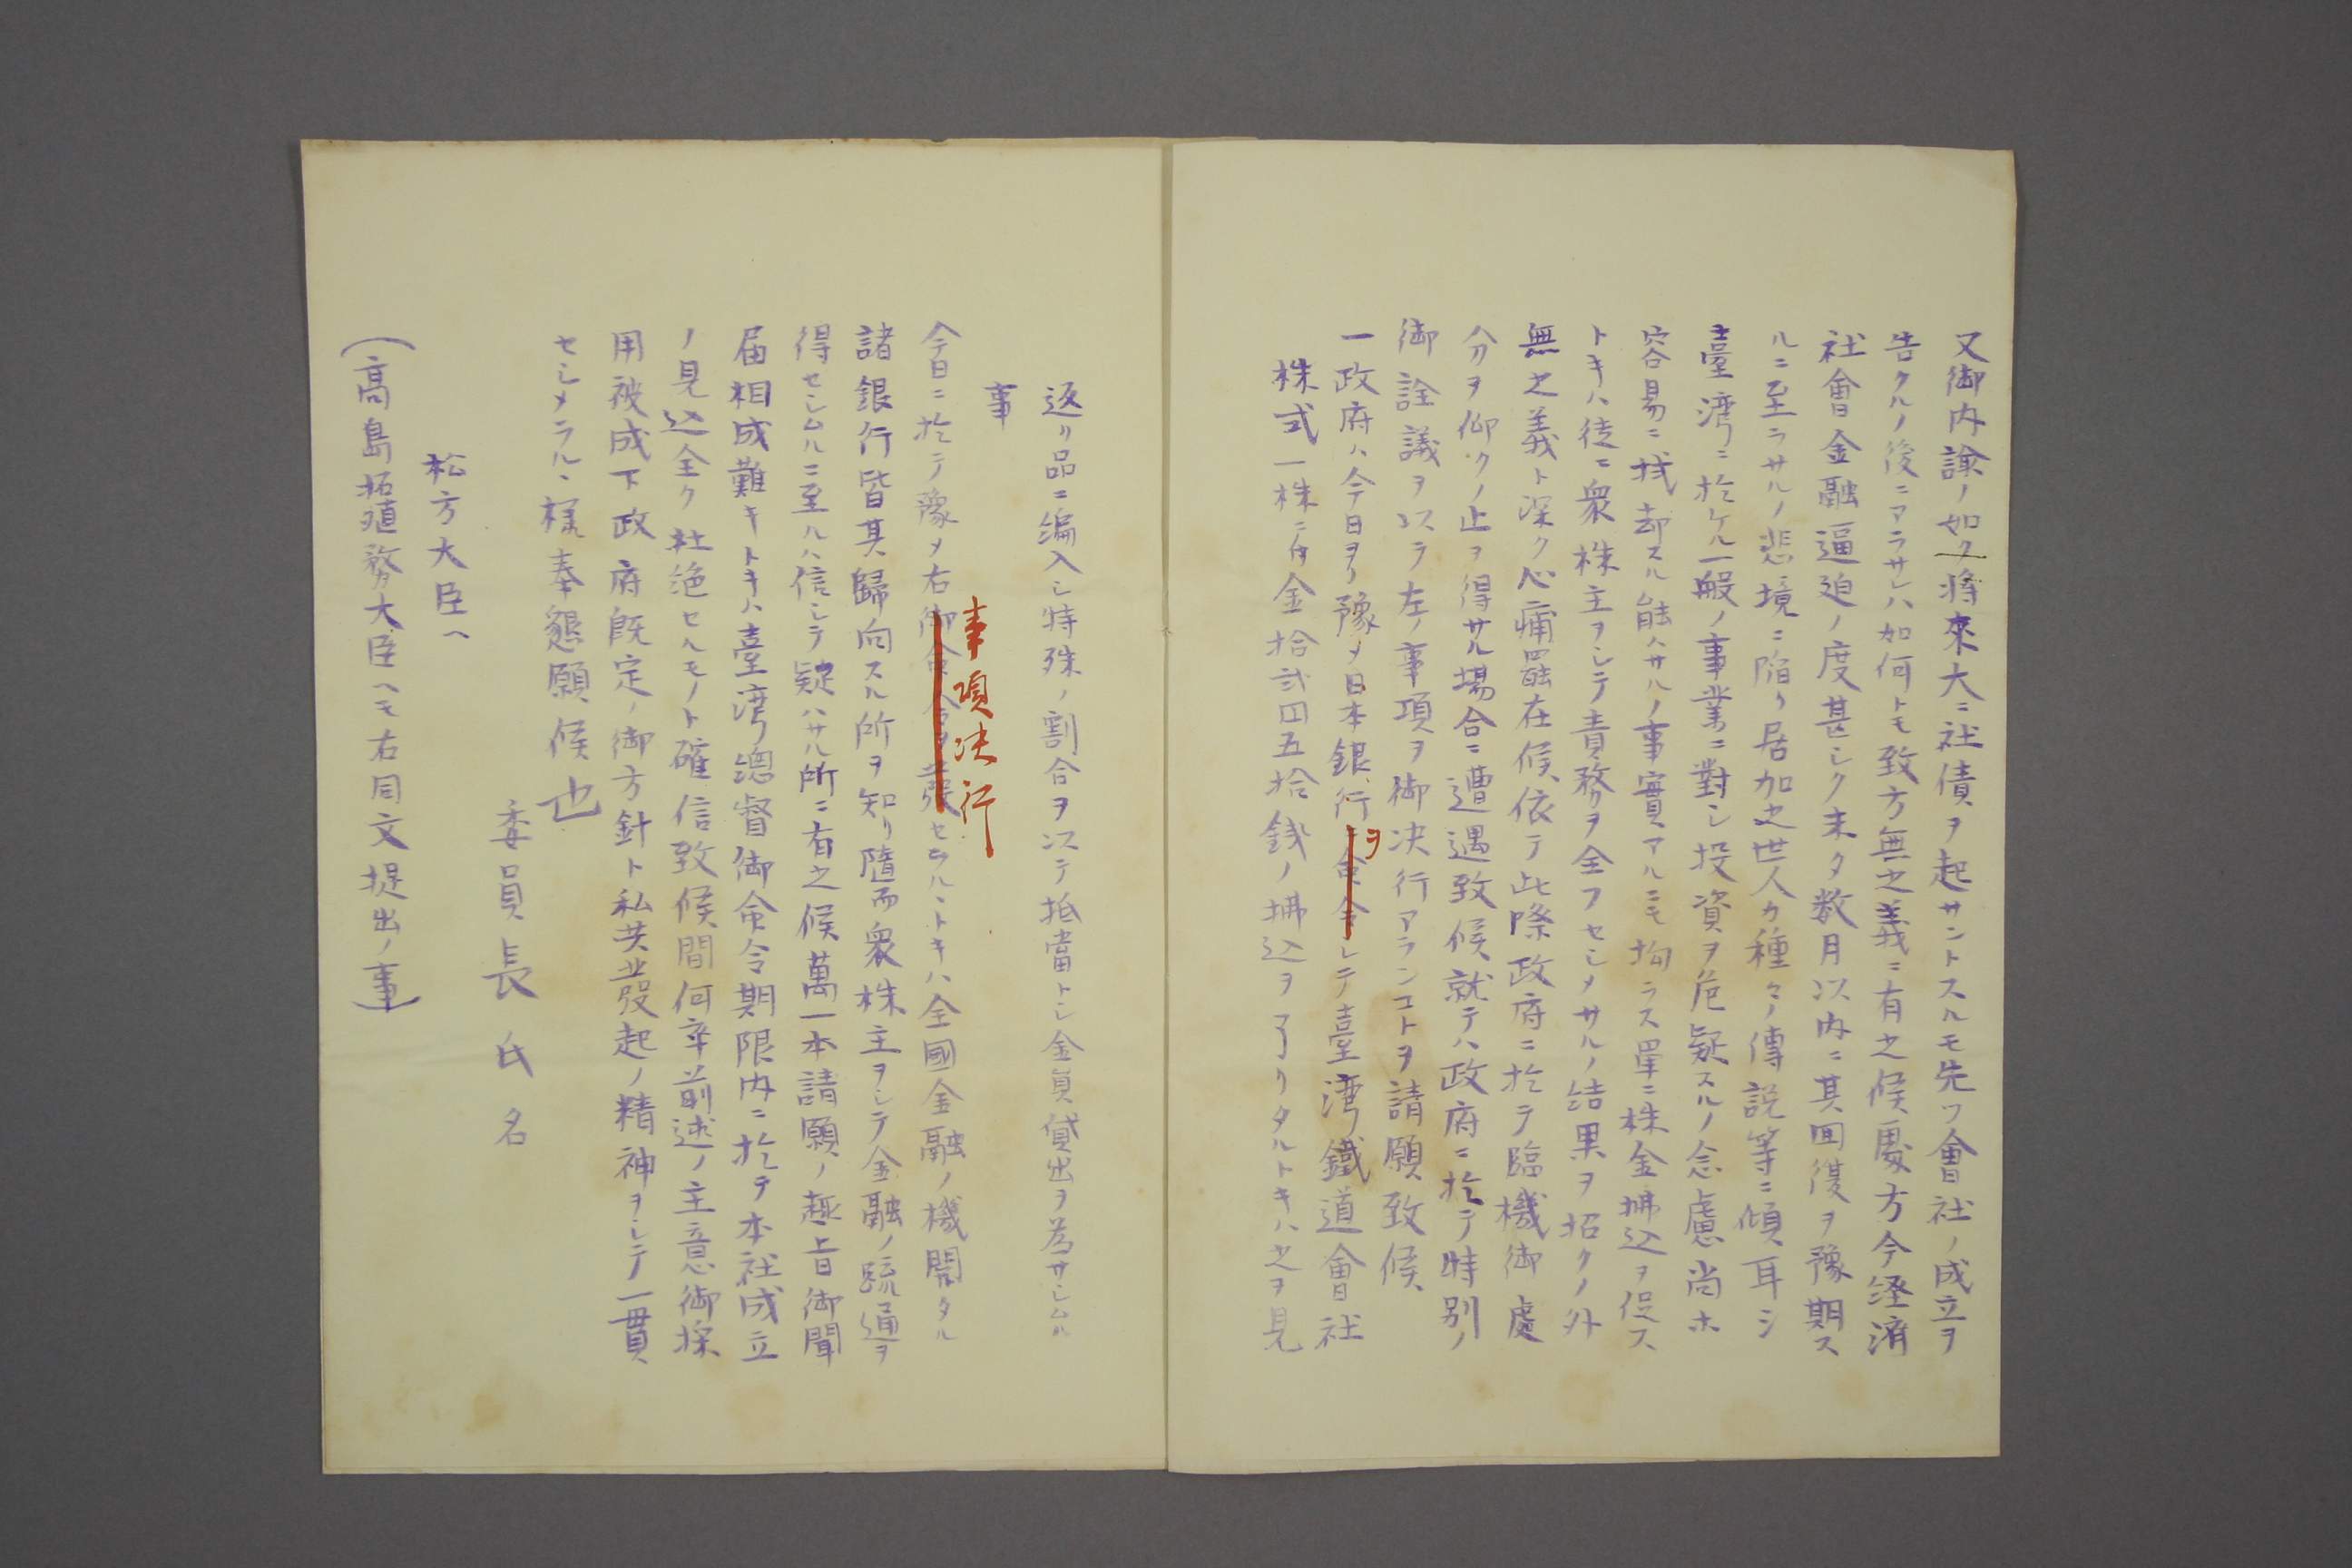 又御内諭ノ如ク將來大ニ社債ヲ起サントスルモ先ツ會社ノ成立ヲ
告クルノ後ニアラサレハ如何トモ致方無之義ニ有之候處方今経濟
社會金融逼迫ノ度甚シク未タ数月以内ニ其回復ヲ豫期ス
ルニ至ラサルノ悲境ニ陥リ居加之世人カ種々ノ傳説等ニ傾耳シ
臺湾ニ於ケル一般ノ事業ニ對シ投資ヲ危疑スルノ念慮尚ホ
容易ニ拭却スル能ハサルノ事實アルニモ拘ラス單ニ株金拂込ヲ促ス
トキハ徒ニ衆株主ヲシテ責務ヲ全フセシメサルノ結果ヲ招クノ外
無之義ト深ク心痛罷在候依テ此際政府ニ於テ臨機御處
分ヲ仰クノ止ヲ得サル場合ニ遭遇致候就テハ政府ニ於テ特別ノ
御詮議ヲ以テ左ノ事項ヲ御决行アランコトヲ請願致候
一政府ハ今日ヨリ豫メ日本銀行ニ命令シテ臺湾鐵道會社
ヲ
株式一株ニ付金拾弐円五拾銭ノ拂込ヲ了リタルトキハ之ヲ見
返リ品ニ編入シ特殊ノ割合ヲ以テ抵當トシ金員貸出ヲ為サシムル
事
事項决行
今日ニ於テ豫メ右御命令ヲ發セラルヽトキハ全國金融ノ機関タル
諸銀行皆其歸向スル所ヲ知リ隨而衆株主ヲシテ金融ノ疏通ヲ
得セシムルニ至ルハ信シテ疑ハサル所ニ有之候萬一本請願ノ趣旨御聞
届相成難キトキハ臺湾總督御命令期限内ニ於テ本社成立
ノ見込全ク杜絶セルモノト確信致候間何卒前述ノ主意御採
用被成下政府既定ノ御方針ト私共發起ノ精神ヲシテ一貫
セシメラルヽ様奉懇願候也
委員長 氏名
松方大臣へ
(高島拓殖務大臣ヘモ右同文提出ノ事)